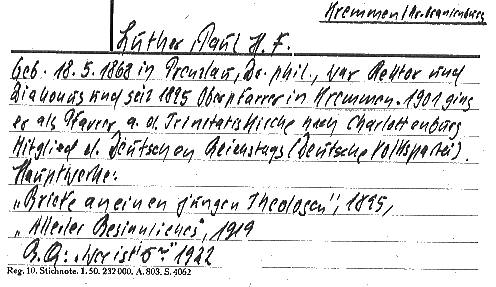 Kremmen/Kr. Oranienburg
Luther, Paul H. F.
geb. 18.5.1868 in Prenzlau, Dr. phil., war Rektor und
Diakonus und seit 1895 Oberpfarrer in Kremmen. 1901 ging
er als Pfarrer a. d. Trinitatiskirche nach Charlottenburg
Mitglied d. Deutschen Reichstags (Deutsche Volkspartei).
Hauptwerke:
„Briefe an einen jungen Theologen", 1895,
„Allerlei Besinnliches", 1919
B. Q.: „Wer ist's" 1922
Reg. 10. Stichnote. 1. 50. 232 000. A. 803. S. 4062